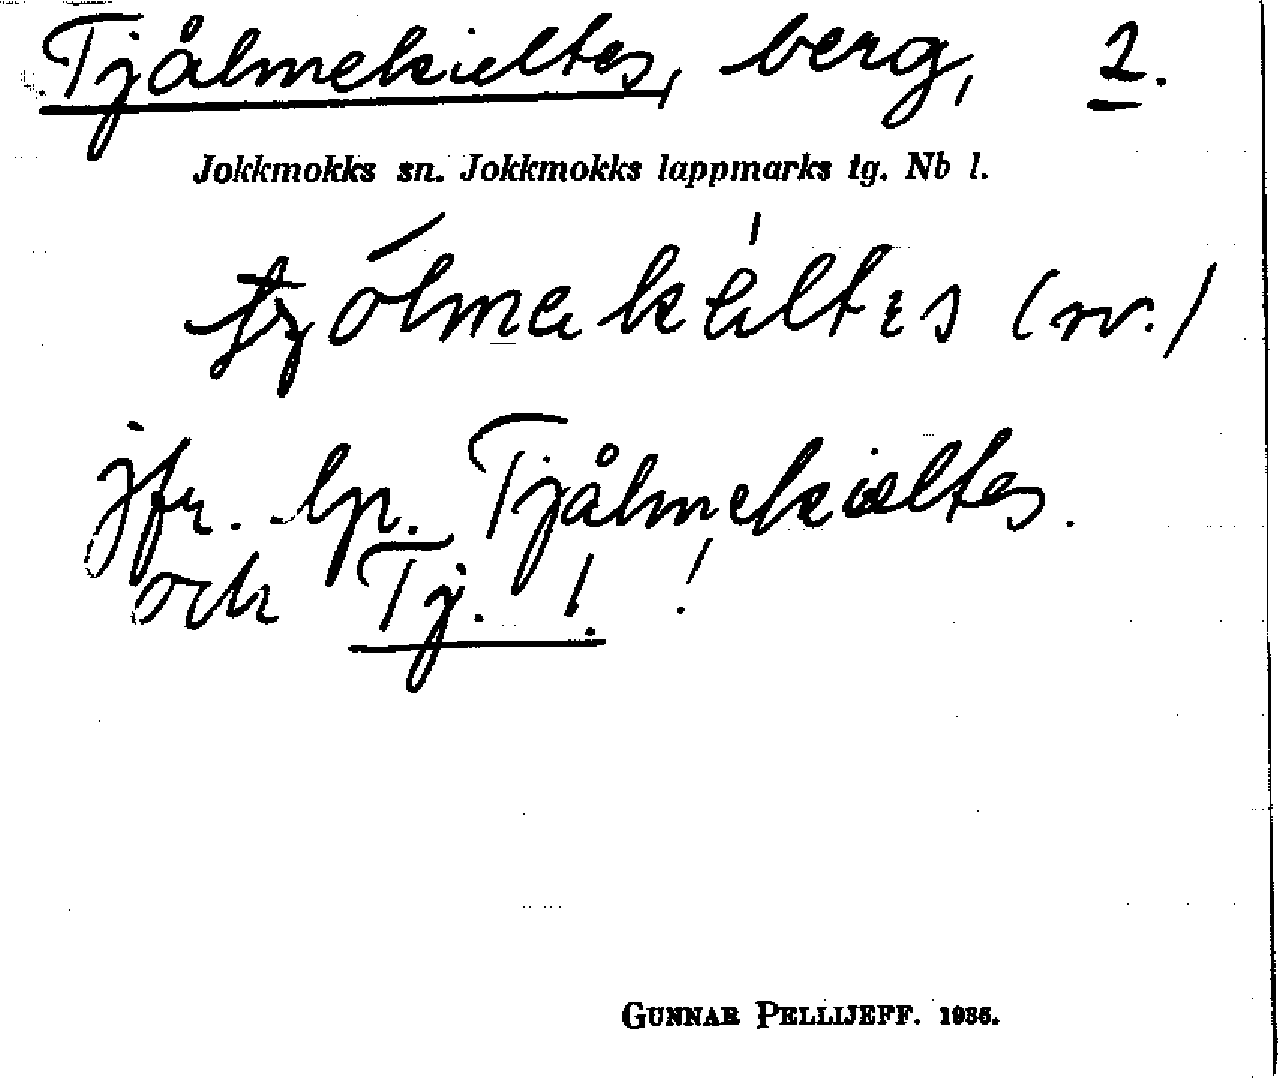 Tjålmekieltes, berg, 2.
Jokkmokks sn. Jokkmokks lappmarks tg. Nb l.
(sv.)
jfr. lp. Tjålmekieltes.
och Tj. 1. !
GUNNAR PELLIJEFF. 1936.